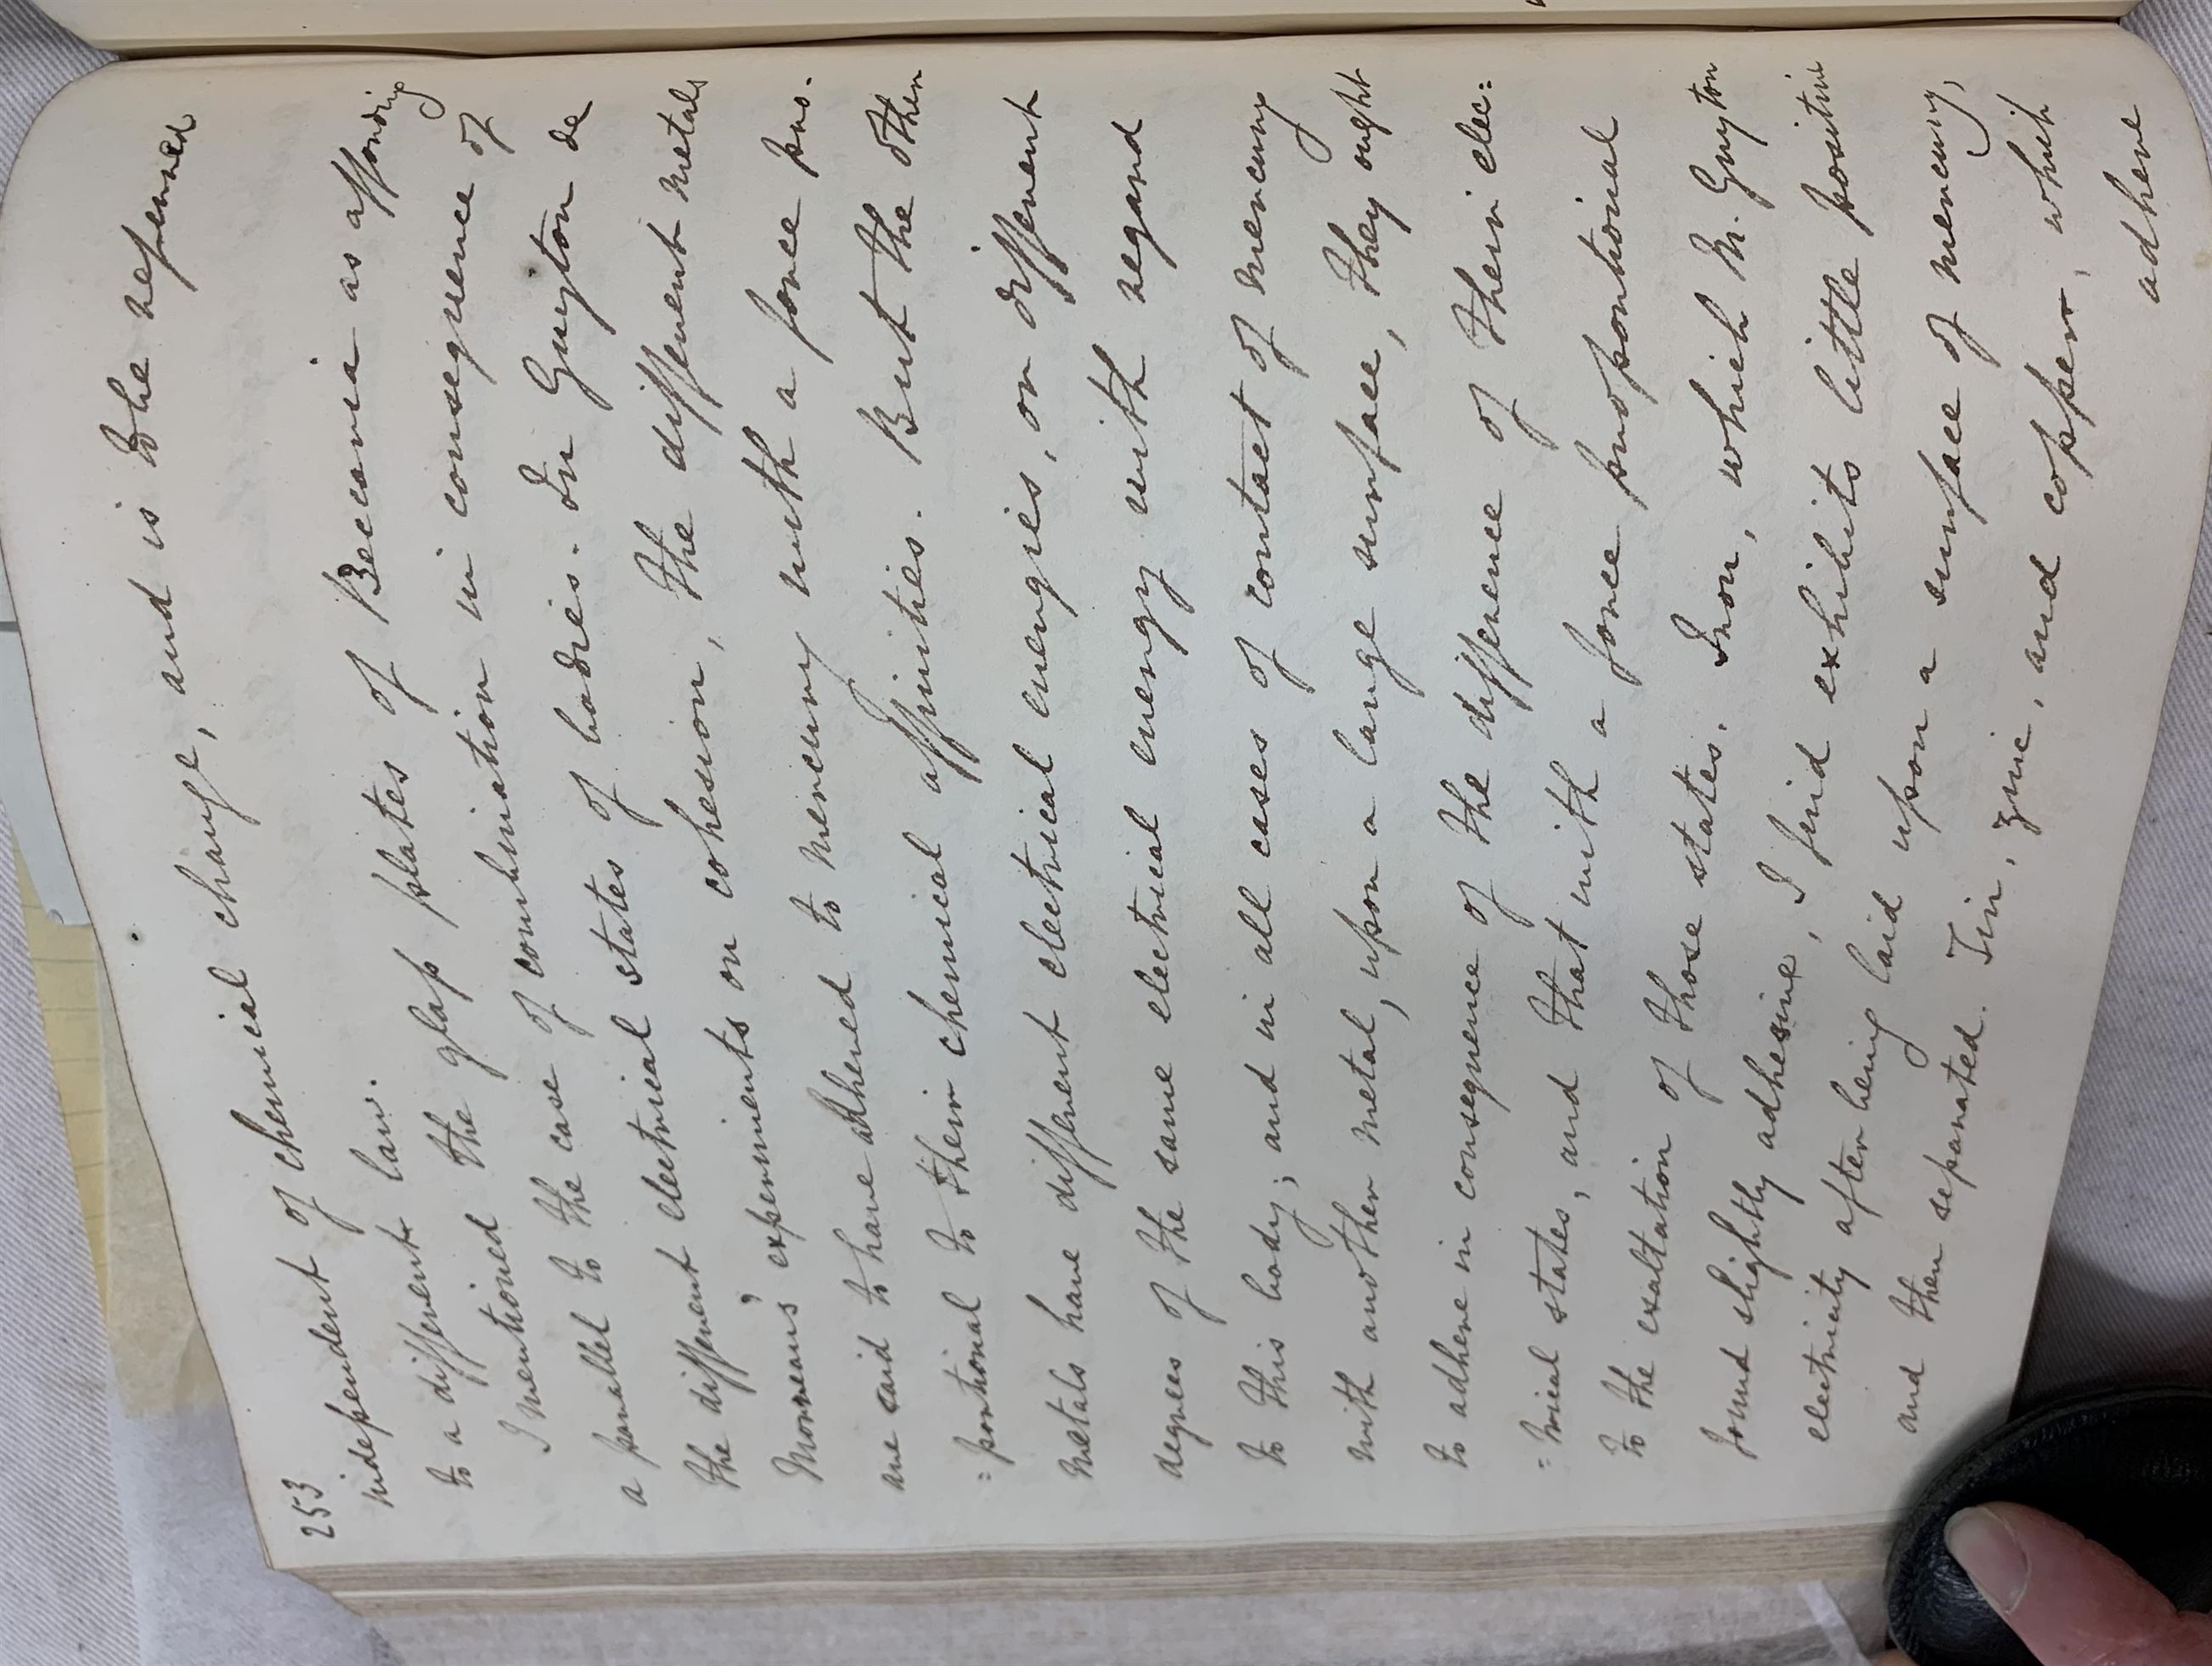 253
independent of chemical change, and is to be referred
to a different law.
I mentioned the glass plates of Beccaria as affording
a parallel to the case of combination in consequence of
the different electrical states of bodies. In Guyton de
Morveau's experiments on cohesion, the different metals
are said to have adhered to mercury with a force pro-
=portional to their chemical affinities. But the other
metals have different electrical energies, or different
degrees of the same electrical energy with regard
to this body; and in all cases of contact of mercury
with another metal, upon a large surface, they ought
to adhere in consequence of the difference of their elec=
=trical states, and that with a force proportional
to the exaltation of those states. Iron, which M. Guyton
found slightly adhesive, I find exhibits little positive
electricity after being laid upon a surface of mercury,
and then separated. Tin, zinc, and copper, which
adhere